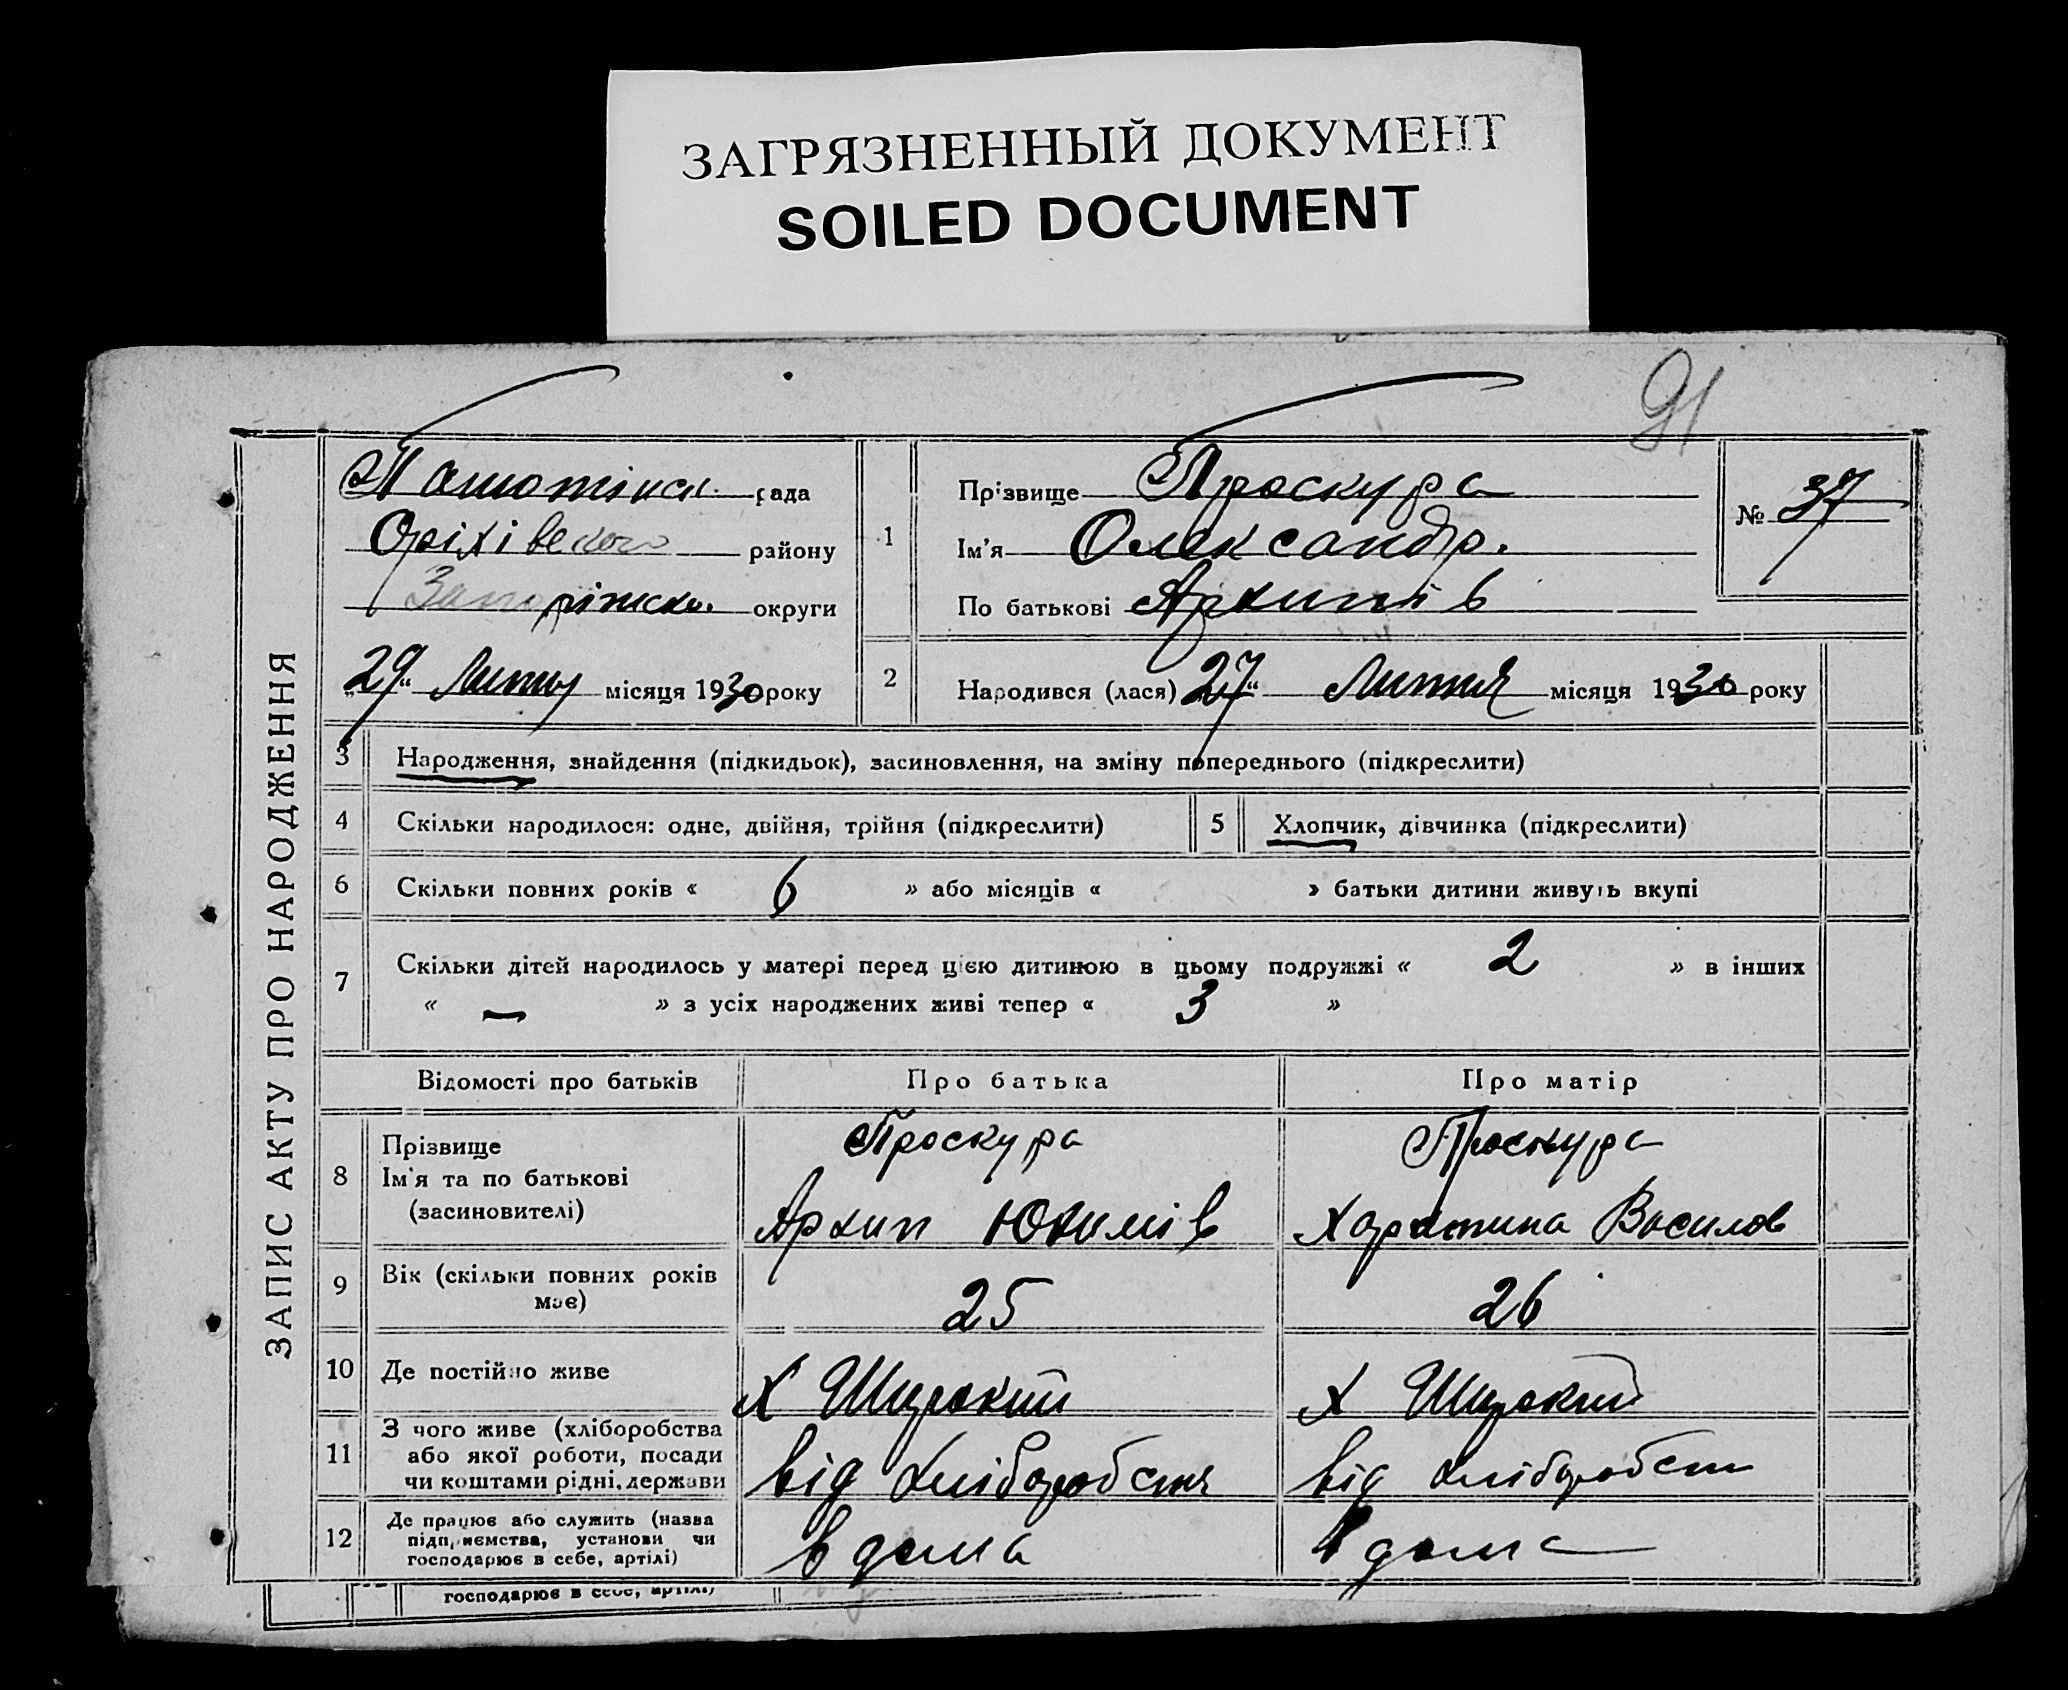 ЗАГРЯЗНЕННЫЙ ДОКУМЕНТ
SOILED DOCUMENT
91
ЗАПИС АКТУ ПРО НАРОДЖЕННЯ
рада
Оріхівського району
Запоріжськ. округи
„29“ Лютня місяця 1930 року
1
Прізвище Проскура
Ім'я Олександр.
По батькові Архипів
№ 37
2
Народився (лася) „27“ Лютня місяця 1930 року
3 Народження, знайдення (підкидьок), засиновлення, на зміну попереднього (підкреслити)
4 Скільки народилося: одне, двійня, трійня (підкреслити)
5 Хлопчик, дівчинка (підкреслити)
6 Скільки повних років « 6 » або місяців « » батьки дитини живуть вкупі
7 Скільки дітей народилось у матері перед цією дитиною в цьому подружжі « 2 » в інших
« — » з усіх народжених живі тепер « 3 »
Відомості про батьків Про батька Про матір
8 Прізвище
Ім'я та по батькові
(засиновителі)
Проскура
Архип Юхимів
Проскура
Харитина Василов
9 Вік (скільки повних років
має)
25
26
10 Де постійно живе
Х Широкий
Х Широкий
11 З чого живе (хліборобства
або якої роботи, посади
чи коштами рідні, держави
від хліборобств
від хліборобств
12 Де працює або служить (назва
підприємства, установи чи
господарює в себе, артілі)
в дома
в дома
господарює в себе, артілі)